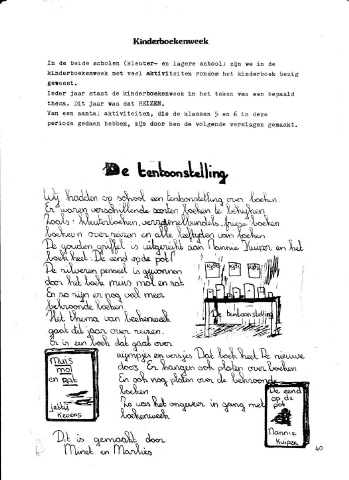 Kinderboekenweek
In de beide scholen (kleuter- en lagere school) zijn we in de
kinderboekenweek met veel aktiviteiten rondom het kinderboek bezig
geweest.
Ieder jaar staat de kinderboekenweek in het teken van een bepaald
thema. Dit jaar was dat REIZEN.
Van een aantal aktiviteiten, die de klassen 5 en 6 in deze
periode gedaan hebben, zijn door hen de volgende verslagen gemaakt.
De tentoonstelling
Wij hadden op school een tentoonstelling over boeken.
Er waren verschillende soorten boeken te bekijken
Zoals: kleuterboeken, verzamelbundels, boeken
boeken over reizen en alle leeftijden van boeken
De gouden griffel is uitgereikt aan Nannie Kuiper en het
boek heet: De eend op de pot!
De zilveren penseel is gewonnen
door het boek muis mol en rat
En zo zijn er nog veel meer
bekroonde boeken.
Het thema van boekenweek
gaat dit jaar over reizen.
Er is een boek dat gaat over
rijmpjes en versjes Dat boek heet De nieuwe
doos. Er hangen ook platen over boeken
En ook nog platen over de bekroonde
boeken
Zo was het ongeveer in gang met
boekenweek
De tentoonstelling
Muis
mol
en rat
De eend
op de
pot
Nannie
Kuiper
Dit is gemaakt door
en Marlies
40